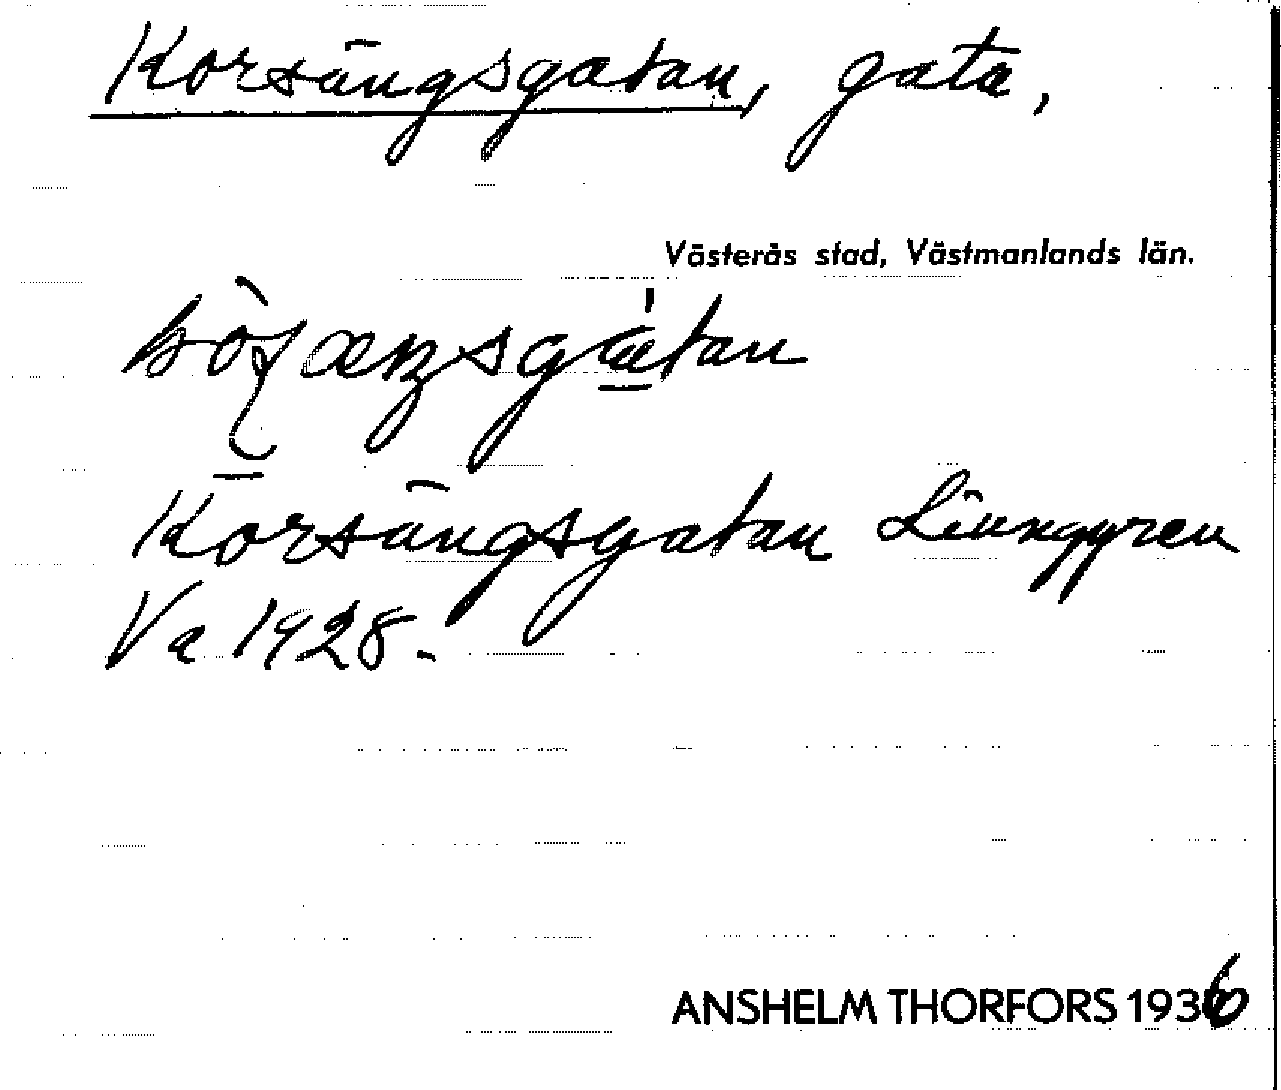 Korsängsgatan, gata,
Västerås stad, Västmanlands län.
Korsängsgatan Ljunggren
Va 1928.
ANSHELM THORFORS 1936